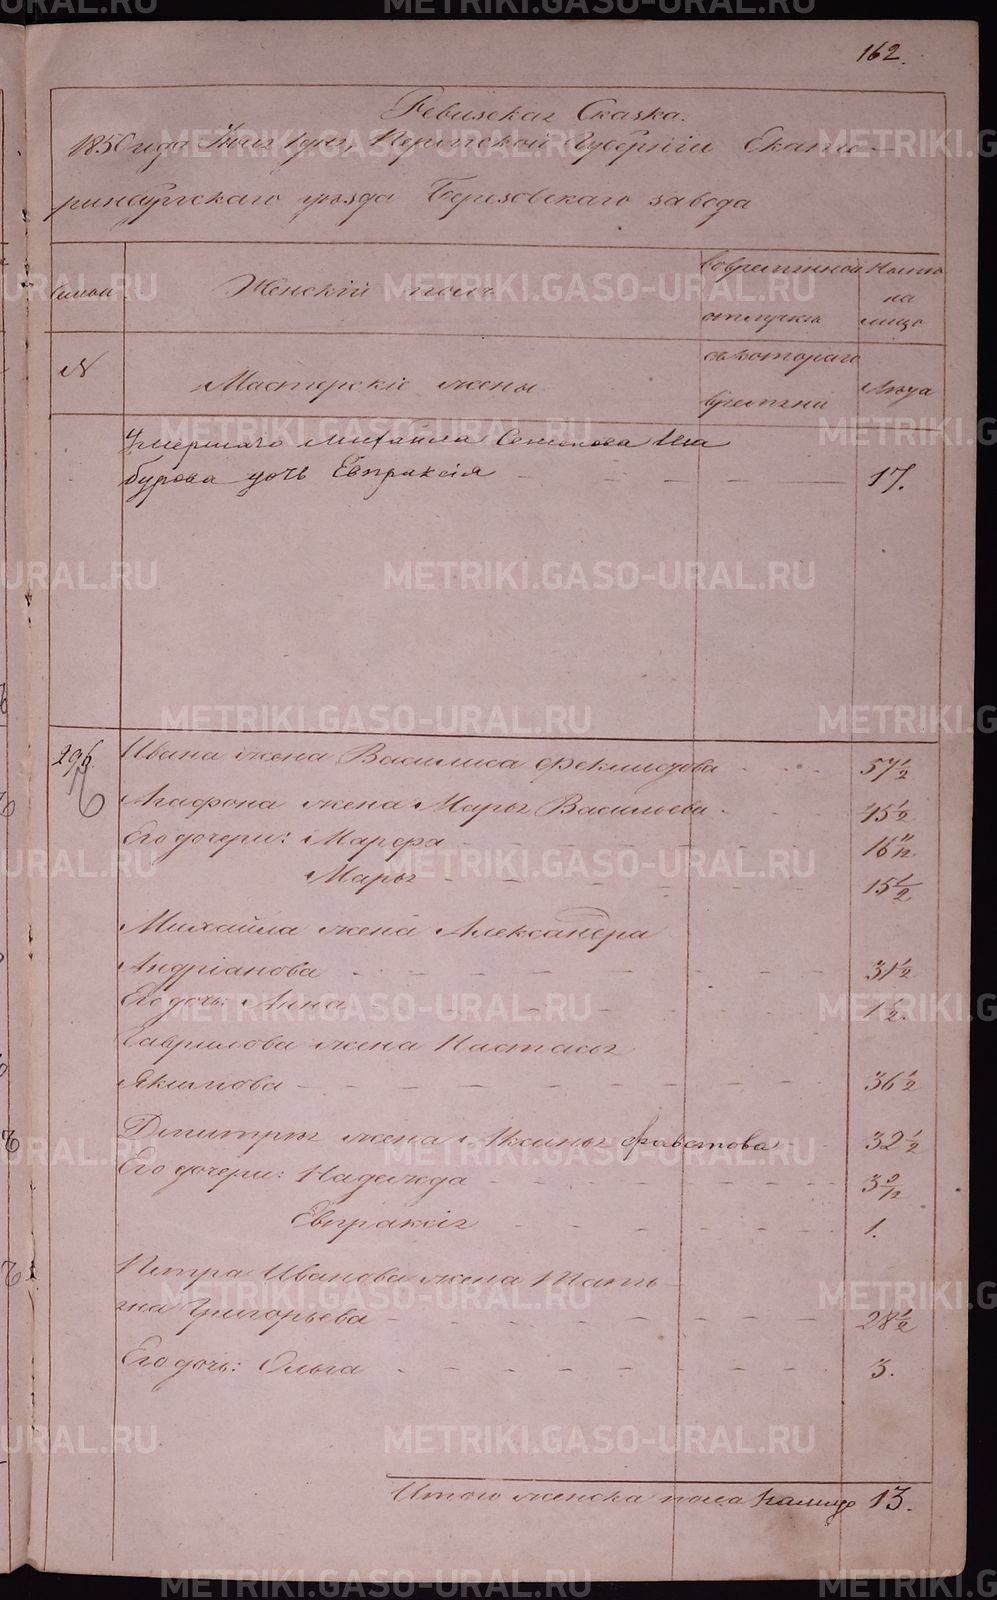 162.
Ревизская Сказка.
1850 года Пермской Губернiи Екате-
ринбургскаго уезда Березовскаго завода
Семьи
Женскiй полъ
Во временной отлучке
Ныне на лицо
№
Мастерскiе жены
съ котораго времени
Лета
Умершаго Михаила Семенова Ша
бурова дочь Евпраксiя 17.
296. Ивана жена Василиса Феклистова 57 1/2
Агафона жена Марья Васильева 45 1/2
Его дочери: Марфа 16 11/12
Марья 15 1/2
Михайла жена Александра
Андрiанова 31 1/2
Его дочь: Анна 1 1/2.
Гаврилова жена Настасья
Якимова 36 1/2
Дмитрия жена Аксинья Фавстова 32 1/2
Его дочери: Надежда 3 9/12
Евпраксiя 1.
Петра Иванова жена Тать
яна Григорьева 28 1/2
Его дочь: Ольга 3.
Итого женска пола налицо 13.
METRIKI.GASO-URAL.RU